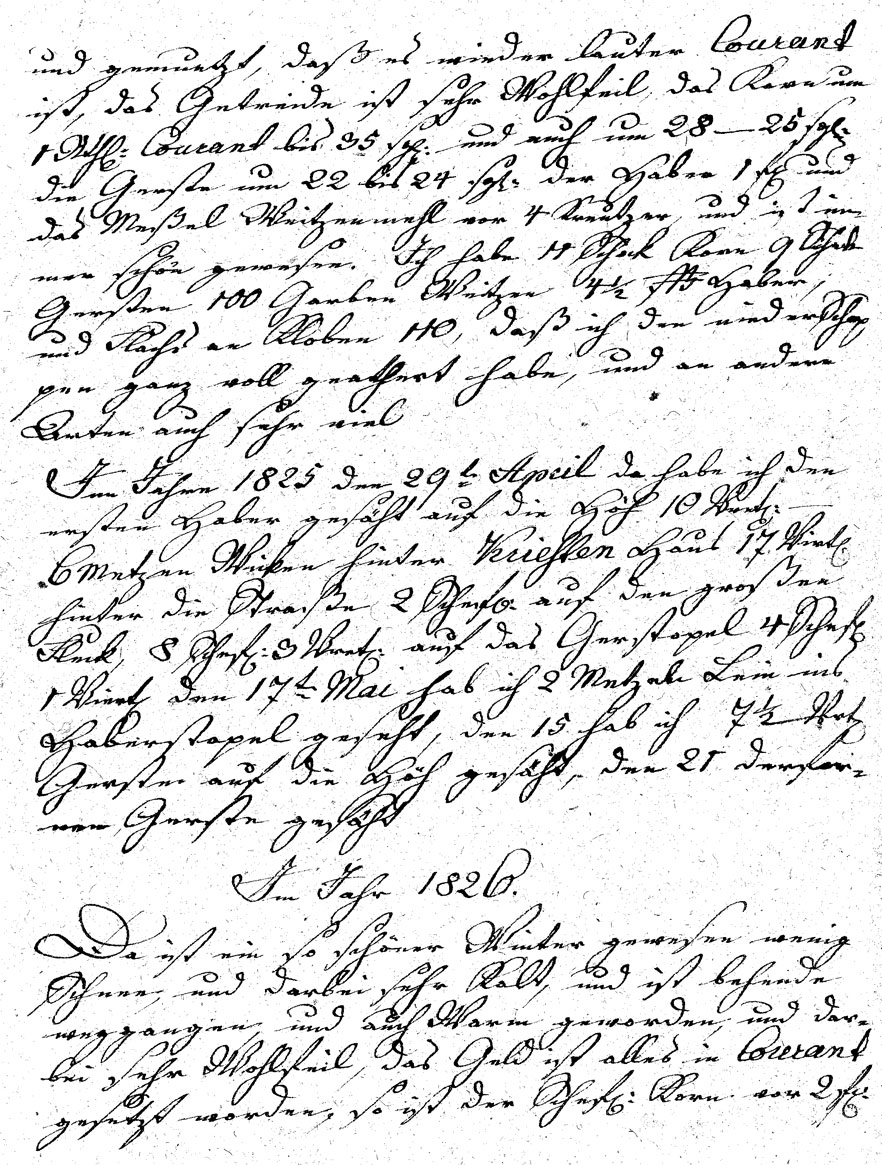 und gemuntzt, daß es wieder lauter Courant
ist, das Getreide ist sehr Wohlfeil, das Korn um
1 Rthl: Courant bis 35 sgl: und auch um 28 — 25 sgl:
die Gerste um 22 bis 24 sgl: der Haber 1 fl und
das Meßel Weitzenmehl vor 4 Kreutzer, und ist im-
mer schön gewesen. Ich habe 11 Schock Korn 9 Schock
Gersten 100 Garben Weitzen 4½ Haber,
und Flachs an Kloben 110, daß ich den niederSchop
pen ganz voll geathert habe, und an andere
Arten auch sehr viel
Im Jahre 1825 den 29t April da habe ich den
ersten Haber gesäht auf die Höh 10 Vrt: —
6 Metzen Wicken hinter Haus 17 Virt:
hinter die Straße 2 Schefl: auf den großen
Fleck, 8 Schefl: 3 Vrt: auf das Gerstopel 4 Schefl
1 Viert, den 17t Mai hab ich 2 Metzen Lein ins
Haberstopel geseht, den 15 hab ich 7½ Vrt
Gersten auf die Höh gesäht, den 21
Gerste gesäht
Im Jahr 1826.
Da ist ein so schöner Winter gewesen wenig
Schnee, und darbei sehr Kalt, und ist behende
weggangen, und auch Warm geworden, und dar-
bei sehr Wohlfeil, das Geld ist alles in Courant
gesetzt worden, so ist der Schefl: Korn vor 2 fl: